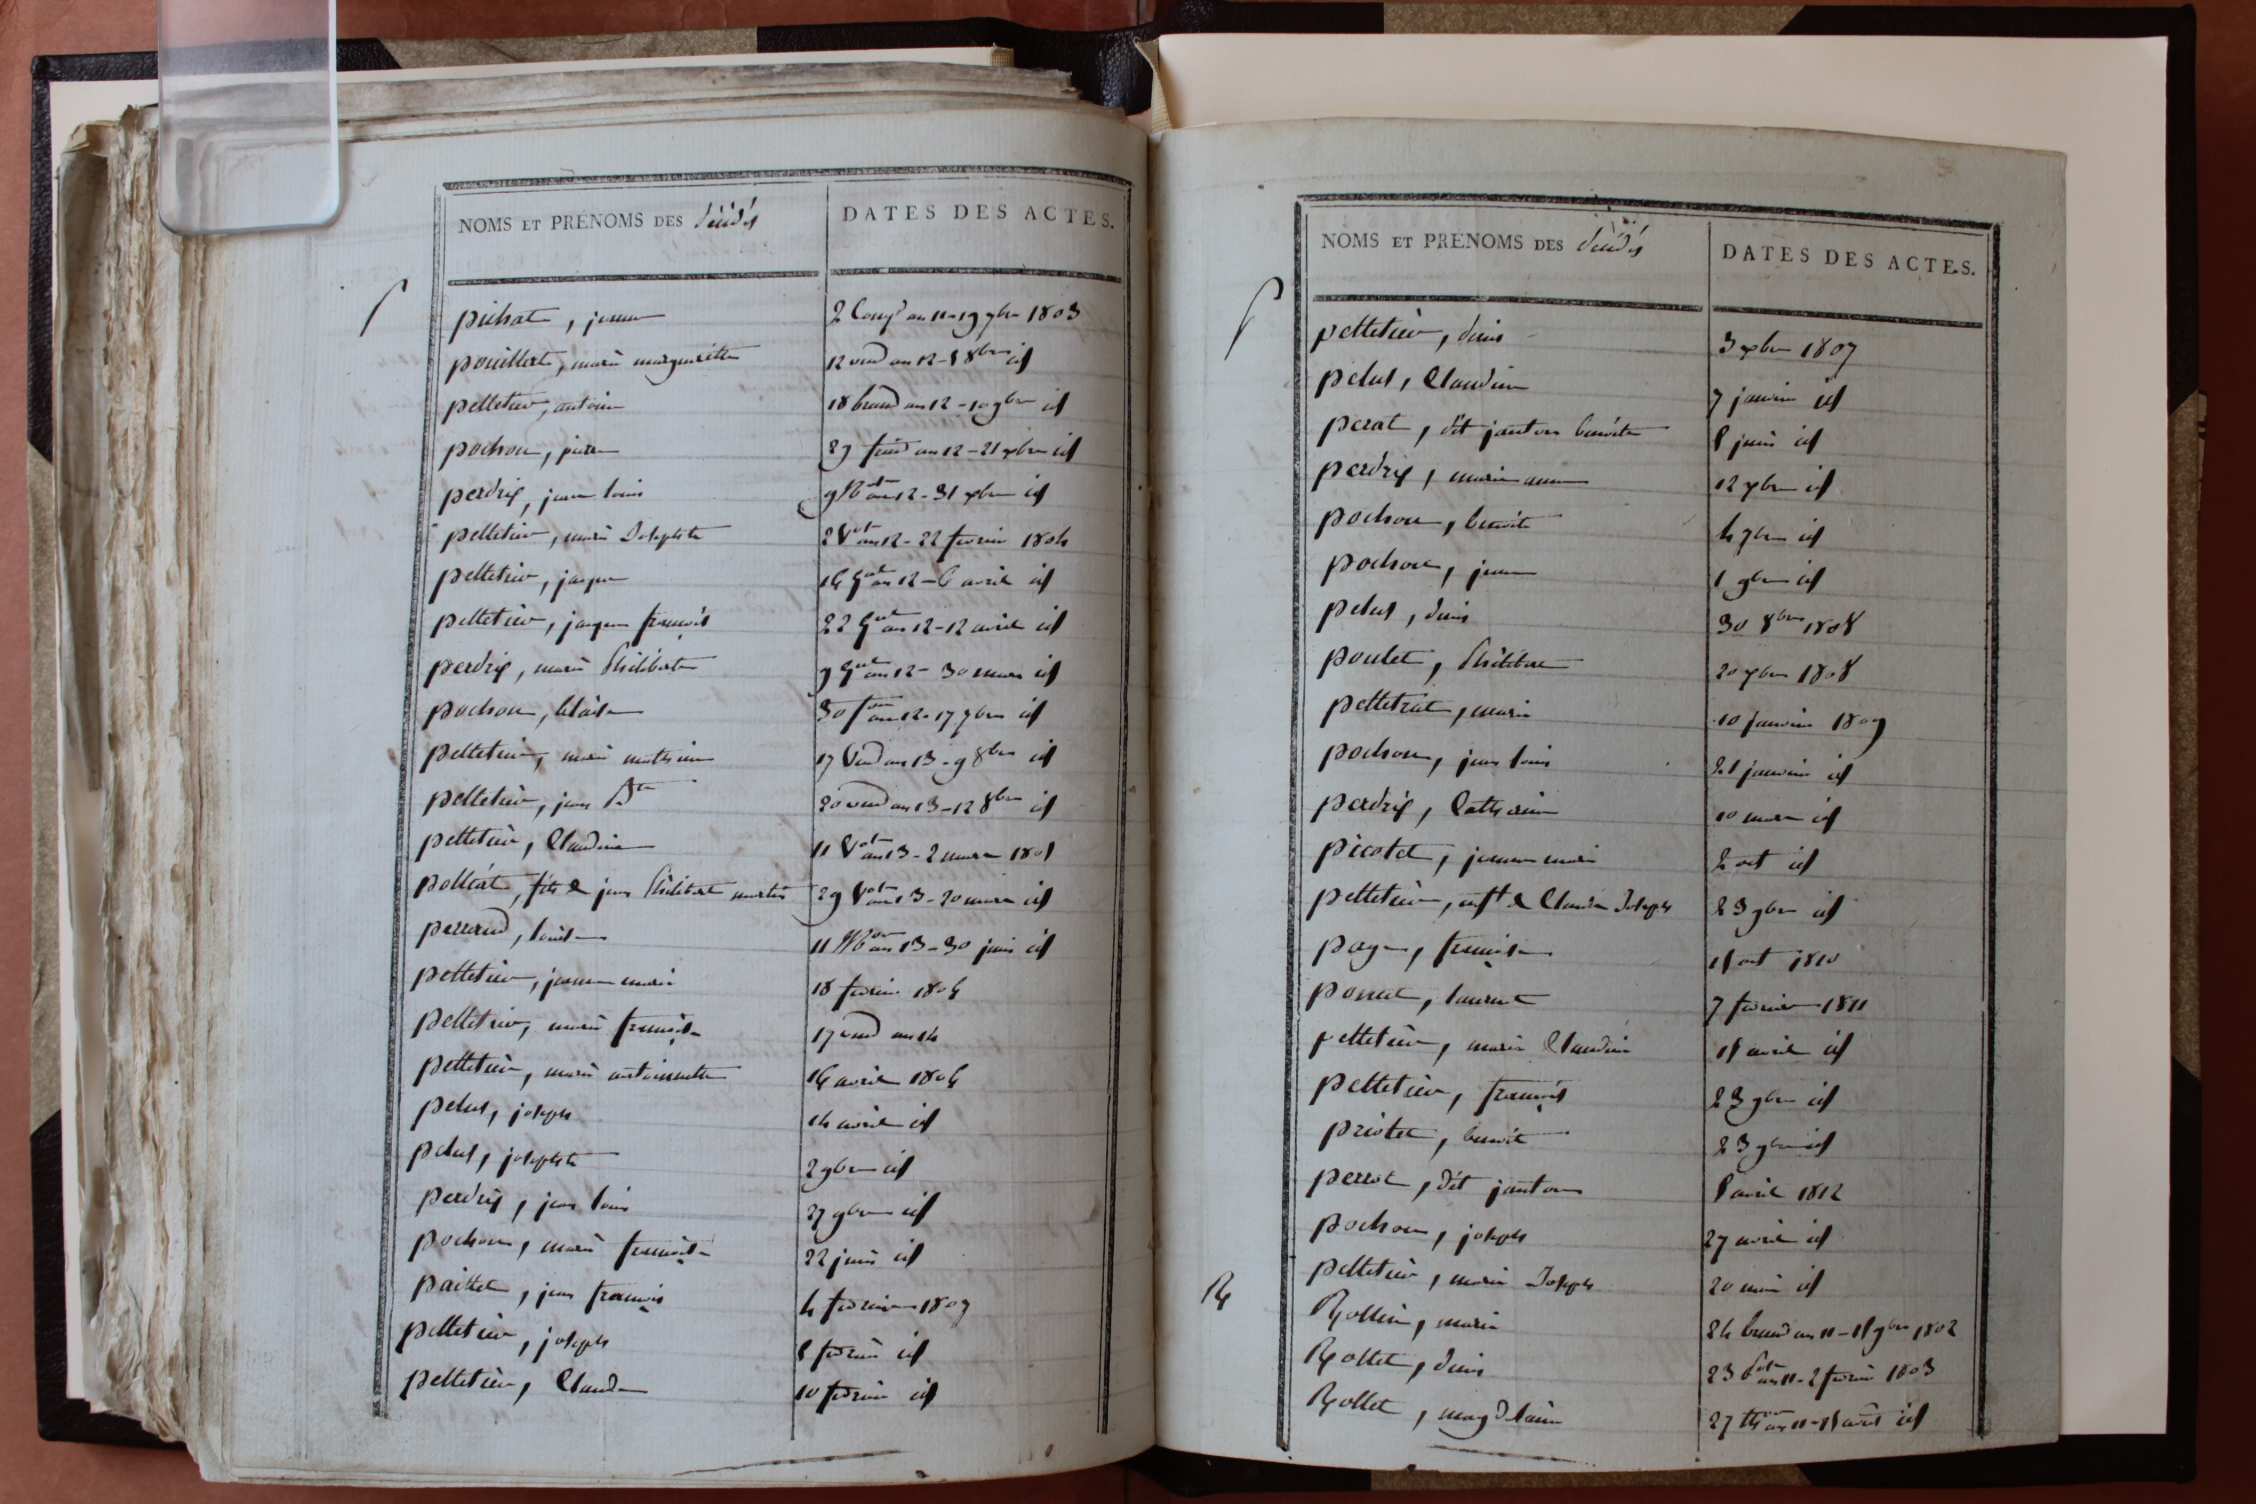 NOMS ET PRÉNOMS DES décédés
DATES DES ACTES.
P
pichat, jeanne 2 Comp an 11 - 19 7bre 1803
pouillert, marie margueritte 12 vend an 12 - 5 8bre id
pelletier, antoine 18 brum an 12 - 10 9bre id
pochon, pierre 29 frim an 12 - 21 xbre id
perdrix, jean louis 9 an 12 - 31 xbre id
pelletier, marie Josephte 2 Vot an 12 - 22 fevrier 1804
pelletier, jacques 16 Gal an 12 - 6 avril id
pelletier, jacques françois 22 Gal an 12 - 12 avril id
perdrix, marie Philiberte 9 Gal an 12 - 30 mars id
pochon, blaise 30 an 12 - 17 7bre id
pelletier, marie mathieu 17 Vend an 13 - 9 8bre id
pelletier, jean Bte 20 vend an 13 - 12 8bre id
pelletier, Claudine 11 Vot an 13 - 2 mars 1805
polliat, fils de jean Philibert martin 29 Vot an 13 - 20 mars id
perraud, louise 11 an 13 - 30 juin id
pelletier, jeanne marie 18 fevrier 1806
pelletier, marie françoise 17 vend an 14
pelletier, marie antoinette 16 avril 1806
pelus, joseph 14 avril id
pelus, josephte 2 9bre id
perdrix, jean louis 27 9bre id
pochon, marie françoise 22 juin id
paillet, jean françois 4 fevrier 1807
pelletier, joseph 5 fevrier id
pelletier, Claude 10 fevrier id
NOMS ET PRÉNOMS DES décédés
DATES DES ACTES.
P
pelletier, denis 3 xbre 1807
pelus, Claudine 7 janvier id
perat, dit janton benoite 5 juin id
perdrix, marie anne 12 7bre id
pochon, benoite 4 7bre id
pochon, jeanne 1 9bre id
pelus, denis 30 8bre 1808
poulet, Philiberte 20 7bre 1808
pelletrat, marie 10 janvier 1809
pochon, jean louis 21 janvier id
perdrix, Catherine 10 mars id
picolet, jeanne marie 2 aout id
pelletier, enft de Claude Joseph 23 9bre id
page, françoise 15 aout 1810
poncet, laurent 7 fevrier 1811
pelletier, marie Claudine 15 avril id
pelletier, françois 23 9bre id
priolet, benoit 23 9bre id
perrot, dit janton 5 avril 1812
pochon, joseph 27 avril id
pelletier, marie Joseph 20 mai id
R
Rollin, marie 24 brum an 11 - 15 9bre 1802
Rollet, denis 23 an 11 - 2 fevrier 1803
Rollet, magdelaine 27 an 11 - 15 août id